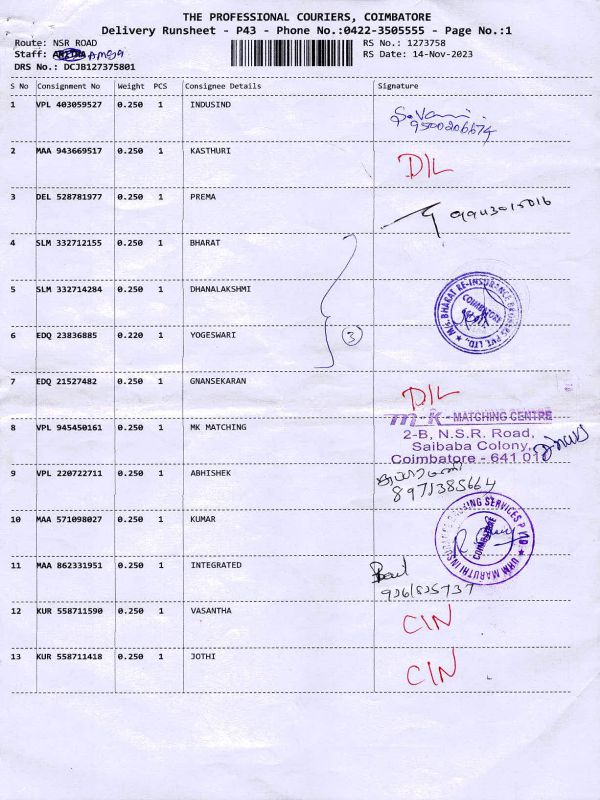 THE PROFESSIONAL COURIERS, COIMBATORE
Delivery Runsheet - P43 - Phone No.:0422-3505555 - Page No.:1
Route: NSR ROAD
RS No.: 1273758
Staff:
RS Date: 14-Nov-2023
DRS No.: DCJB127375801
S No Consignment No Weight PCS Consignee Details Signature
1 VPL 403059527 0.250 1 INDUSIND
9500206674
2 MAA 943669517 0.250 1 KASTHURI
D/L
3 DEL 528781977 0.250 1 PREMA
9943015016
4 SLM 332712155 0.250 1 BHARAT
5 SLM 332714284 0.250 1 DHANALAKSHMI
M/s. BHARAT RE-INSURANCE BROKERS PVT. LTD., ★
COIMBATORE
6 EDQ 23836885 0.220 1 YOGESWARI
3
7 EDQ 21527482 0.250 1 GNANSEKARAN
D/L
8 VPL 945450161 0.250 1 MK MATCHING
m-k - MATCHING CENTRE
2-B, N.S.R. Road,
Saibaba Colony,
Coimbatore - 641 011
9 VPL 220722711 0.250 1 ABHISHEK
8971385664
10 MAA 571098027 0.250 1 KUMAR
COIMBATORE
11 MAA 862331951 0.250 1 INTEGRATED
12 KUR 558711590 0.250 1 VASANTHA
C/N
13 KUR 558711418 0.250 1 JOTHI
C/N